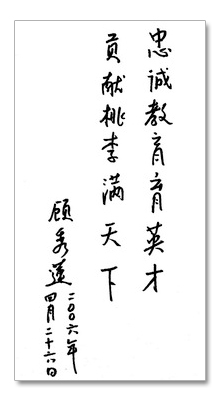 忠诚教育育英才
贡献桃李满天下
顾秀莲
二〇〇六年
四月二十六日